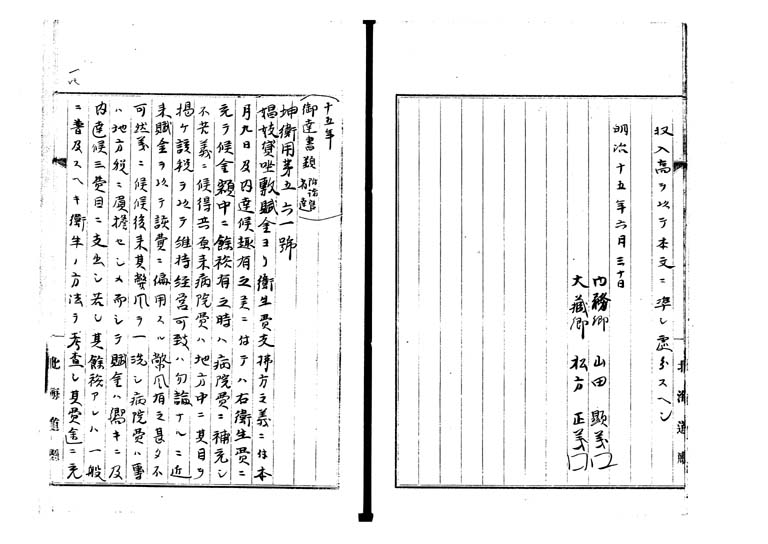 収入高ヲ以テ本文ニ準シ處分スヘシ
明治十五年六月三十日
内務卿 山田顕義
大蔵卿 松方正義
北海道廳
十五年
御達書類
坤衛用第五六一號
娼妓貸坐敷賦金ヨリ衛生費支拂方之義ニ付本
月九日及内達候趣有之候ニ付テハ右衛生費ニ
充ヲ候金額中ニ餘裕有之時ハ病院費ニ補充シ
不苦義ニ候得共原来病院費ハ地方中ニ其目ヲ
掲ケ該税ヲ以テ維持経営可致ハ勿論ナルニ近
来賦金ヲ以テ該費ニ偏用スル弊風有之甚タ不
可然義ニ候候後来其弊風ヲ一洗シ病院費ハ専
ハ地方税ニ負擔セシメ而シテ賦金ハ曩キニ及
内達候三費目ニ支出シ若シ其餘裕アレハ一般
ニ普及スヘキ衛生ノ方法ヲ考査シ其費金ニ充
北海道廳